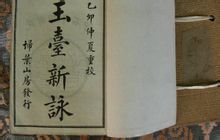 己卯仲夏重校
玉臺新詠
掃葉山房發行